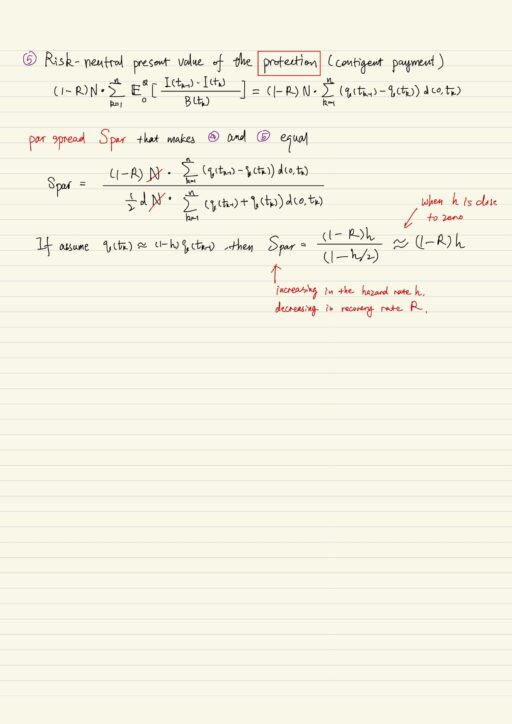 ⑤ Risk-neutral present value of the protection (contigent payment)
(1-R)N·∑_{k=1}^{n} E_0^Q [ (I(t_{k-1}) - I(t_k)) / B(t_k) ] = (1-R) N·∑_{k=1}^{n} (q(t_{k-1}) - q(t_k)) d(0,t_k)
par spread Spar that makes ④ and ⑤ equal
Spar = (1-R) N · ∑_{k=1}^{n} (q(t_{k-1}) - q(t_k)) d(0,t_k) / ½ δ N · ∑_{k=1}^{n} (q(t_{k-1}) + q(t_k)) d(0,t_k)
when h is close
to zero
If assume q(t_k) ≈ (1-h) q(t_{k-1}), then Spar = (1-R)h / (1-h/2) ≈ (1-R)h
increasing in the hazard rate h.
decreasing in recovery rate R.